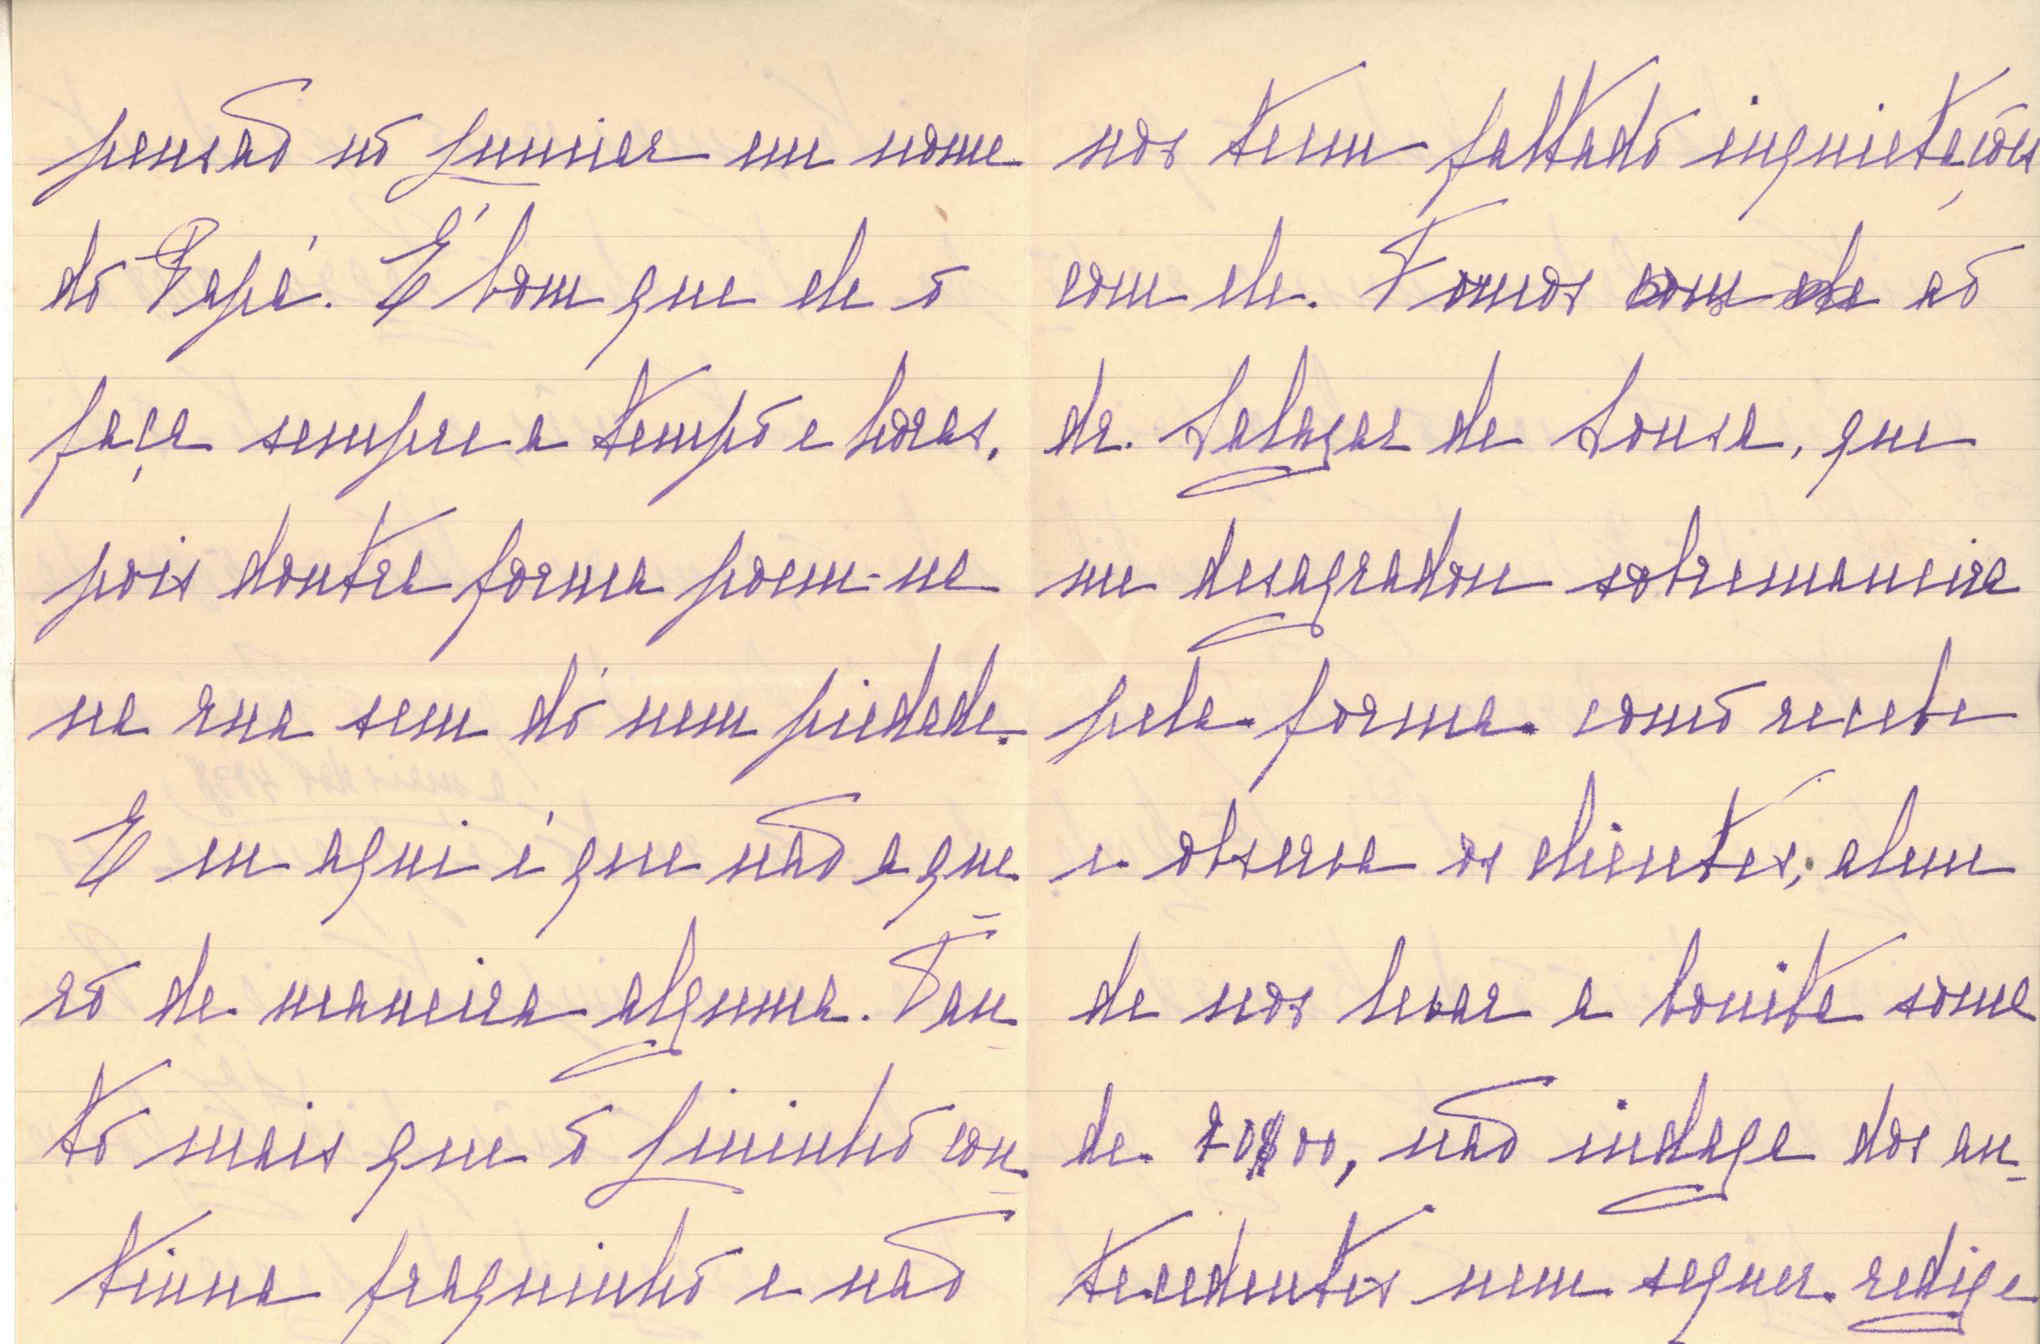 pensão no Junior em nome
do Papá. É bom que ele o
faça sempre a tempo e horas,
pois doutra forma poem-na
na rua sem dó nem piedade.
E eu aqui é que não a que
ro de maneira alguma. Tan
to mais que o Lininho con
tinua fraquinho e não
nos tem faltado inquietações
com ele. Fomos com ele ao
dr. Salazar de Sousa, que
me desagradou sobremaneira
pela forma como recebe
e observa os clientes; alem
de nos levar a bonita soma
de 20$00, não indaga dos an
tecedentes nem sequer redige